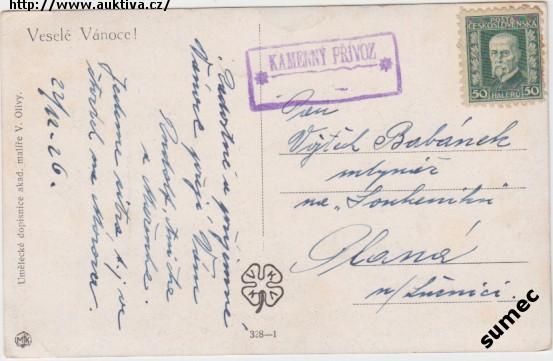 http://www.auktiva.cz/
Veselé Vánoce!
Radostné a příjemné
Vánoce přejí Vám
Rudolf, Anička
a Mařenka.
Jedeme zítra t.j. ve
na Moravu.
22/12-26.
Umělecké dopisnice akad. malíře V. Olivy.
MK
V K K V
328—1
KAMENNÝ PŘÍVOZ
POŠTA
ČESKOSLOVENSKÁ
50 HALÉŘŮ 50
Pan
Vojtěch Babánek
mlynář
na „Soukeníku"
Planá
n/Lužnicí.
sumec